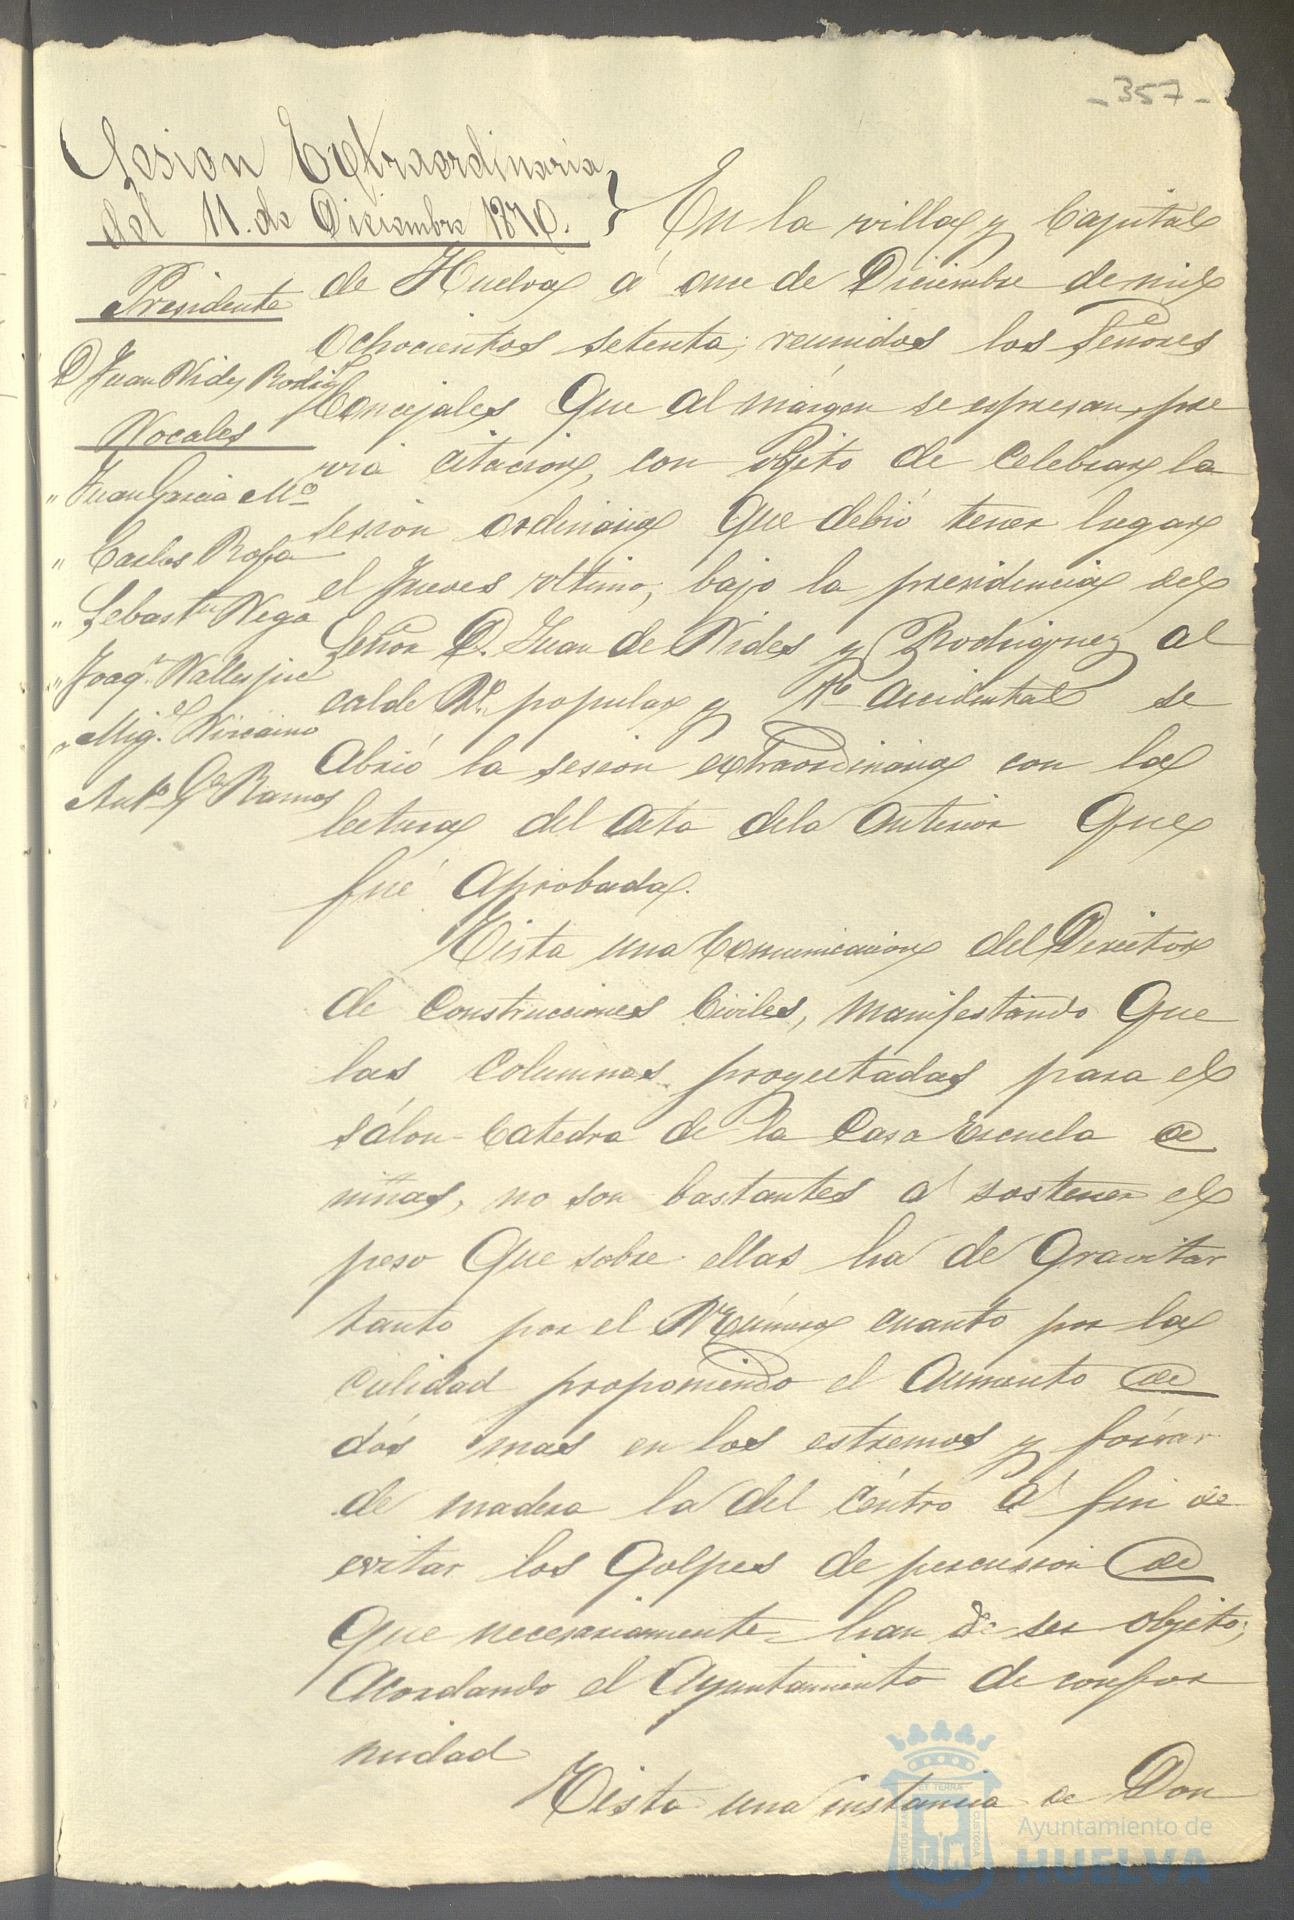 -357-
Sesion Extraordinaria
del 11. de Diciembre 1870.
Presidente
D Juan Vides Rodrig
Vocales
" Juan Garcia
" Carlos Rofa
" Sebastn Vega
" Joaqn
" Migl. Vizcaino
Anto Ga Ramos
En la villa y Capital
de Huelva á once de Diciembre de mil
ochocientos setenta; reunidos los Señores
Concejales que al márgen se espresan, pre
via citacion, con objeto de celebrar la
sesion ordinaria que debió tener lugar
el Jueves ultimo; bajo la presidencia del
Señor D. Juan de Vides y Rodriguez al
calde popular y accidental se
abrió la sesion extraordinaria con la
lectura del acta dela anterior que
fué aprobada.
Vista una Comunicacion del Director
de Construcciones Civiles, manifestando que
las columnas proyectadas para el
sálon Catedra de la Casa Escuela de
niñas, no son bastantes á sostener el
peso que sobre ellas ha de gravitar
tanto por el Número cuanto por la
calidad proponiendo el aumento de
dos mas en los estremos y forrar
de madera la del céntro á fin de
evitar los golpes de percusion de
que necesariamente han de ser objeto;
acordando el Ayuntamiento de confor
midad
Vista una instancia de Don
Ayuntamiento de
HUELVA